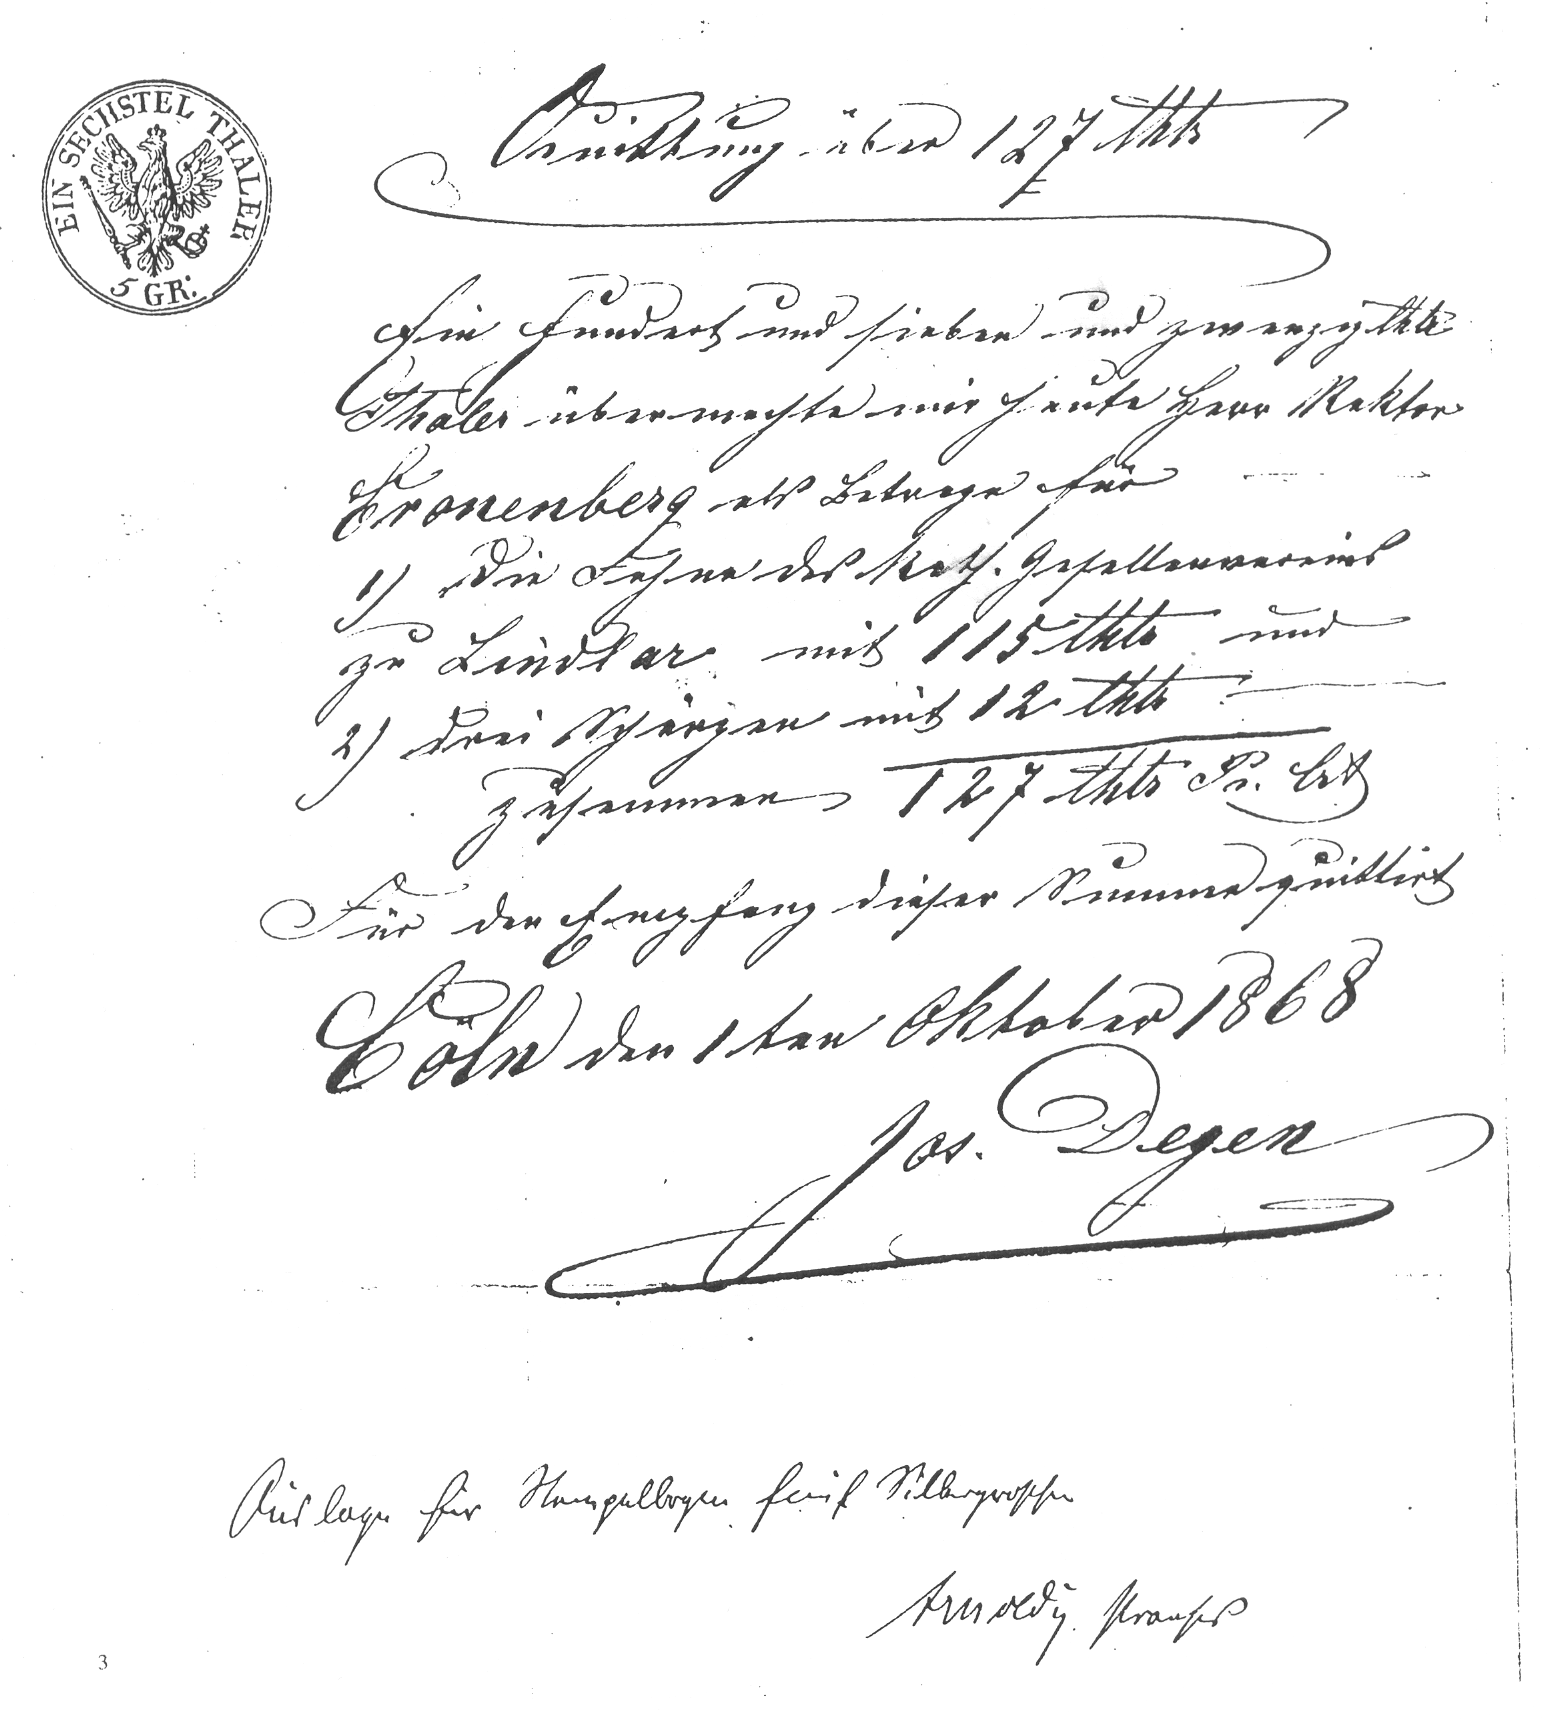 EIN SECHSTEL THALER
5 GR:
Quittung über 127 thlr
Ein Hundert und sieben und zwanzig thlr
Thaler übermachte mir heute Herr Rektor
Cronenberg als Betrage für
1) Die Fahne des Kath. Gesellenvereins
zu Lindlar mit 115 thlr und
2) drei Schärpen mit 12 thlr
zusammen 127 thlr Pr. Crt
Für den Empfang dieser Summe quittirt
Cöln den 1ten Oktober 1868
Jos. Degen
Auslage für Stempelbogen fünf Silbergroschen
Arnoldy
3